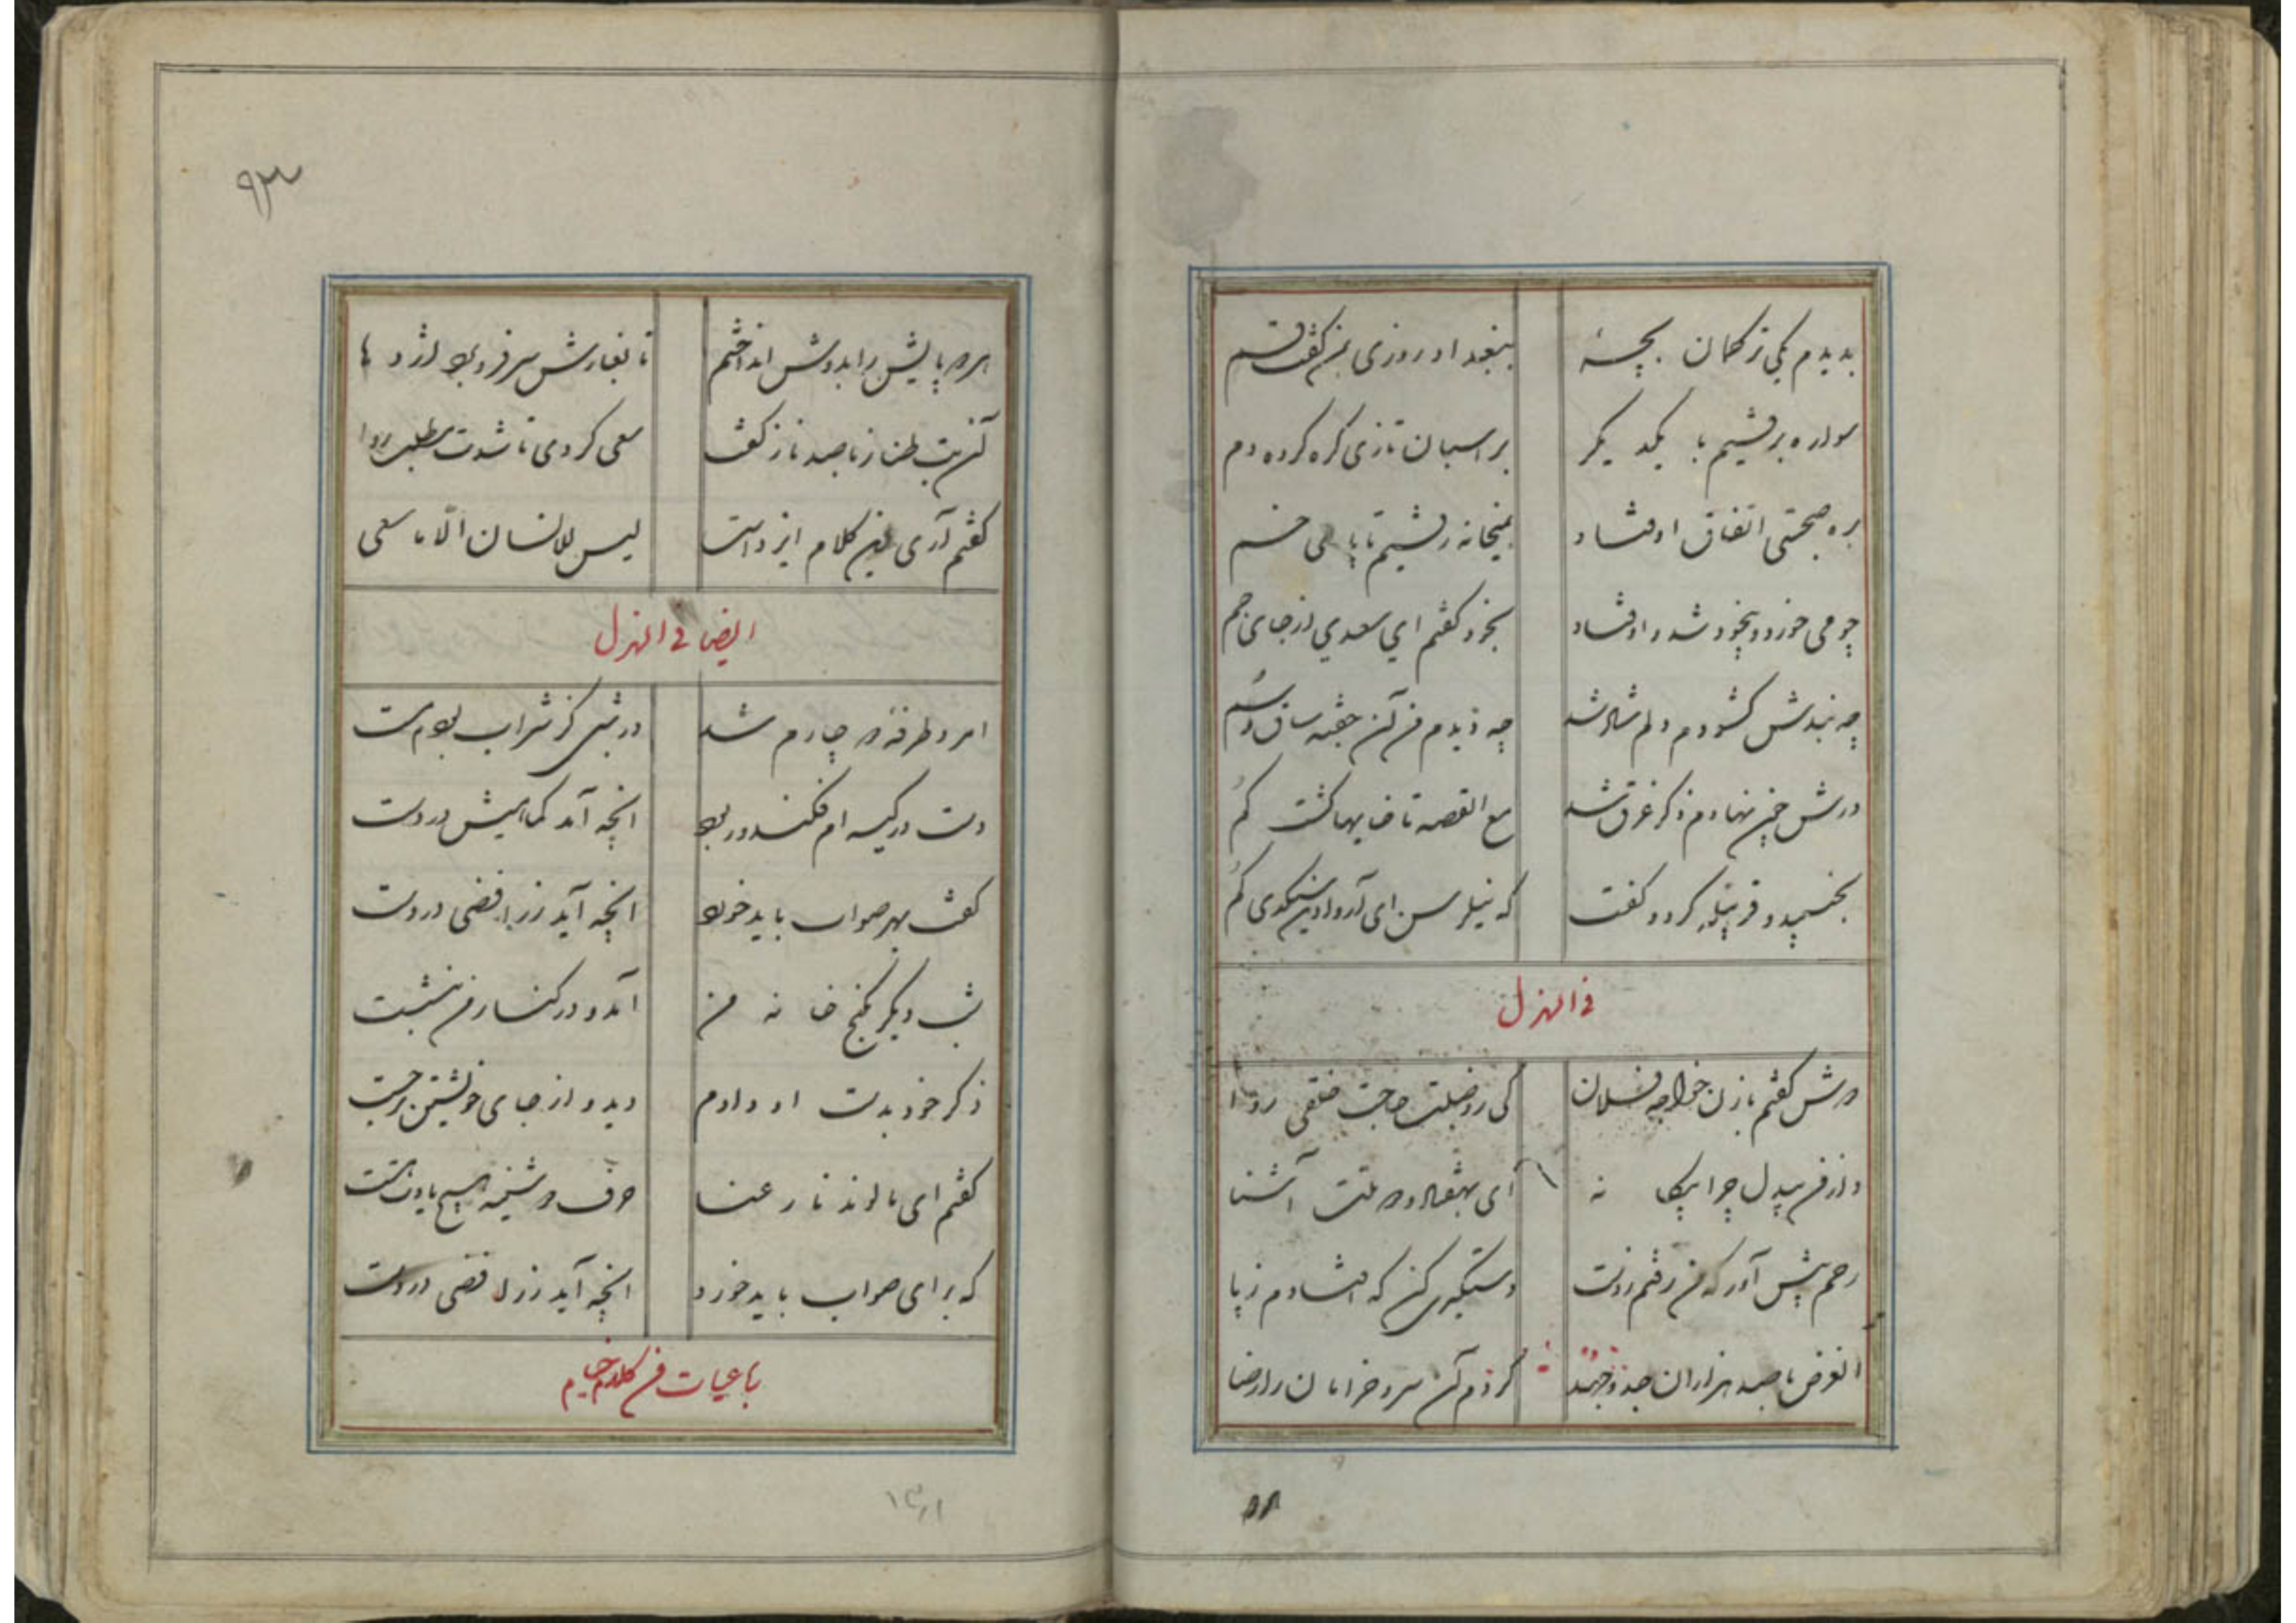 بدیدم یکی ترکمان بچهٔ ببغداد روزی من گفت قم
سواره برفتیم با یکدیگر بر اسبان تازی کره کرده دم
بره صحبتی اتفاق اوفتاد بمیخانه رفتیم تا پای خم
چو می خورد و بیخود شد و اوفتاد بخود گفتم ای سعدی از جای جم
چه بندش گشودم دلم شاد شد چه دیدم من آن جفته ساق و سم
درش چین نهادم ذکر غرق شد مع القصه تا خایها گشت گم
بخسپید و گفت که
فی الهزل
دوش گفتم با زن خواجه فلان کی ز وصلت حاجت خلقی روا
از من بیدل چرا بیگانه ای آشنا
رحم پیش آور که من رفتم ز دست دستگیری کن که افتادم ز پا
الغرض با صد هزاران جد و جهد کردم آن سرو خرامان را رضا
۹۳
هر دو پایش را بدوش انداختم تا بغارش سر فرو برد اژدها
آن بت طناز با صد ناز گفت سعی کردی تا شدت مطلب روا
گفتم آری این کلام ایزد است لیس للانسان الا ما سعی
ایضا فی الهزل
امرد طرفه دچارم شد در شبی کز شراب بودم مست
دست در کیسه ام فکند و ربود انچه آمد کمابیش در دست
گفت بهر صواب باید خورد انچه آید ز رافضی در دست
شب دیگر بکنج خانه من آمد و در کنار من بنشست
ذکر خود بدست او دادم دید و از جای خویشتن برجست
گفتم ای رعنا حرف دوشینه هیچ یادت هست
که برای صواب باید خورد انچه آید ز رافضی در دست
باعیات من کلام خیام